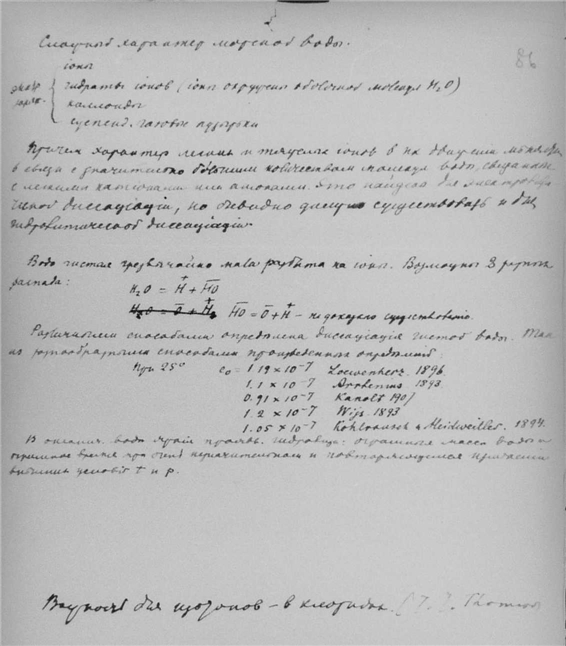 86
Сложный характер морской воды.
іоны
гидраты іонов (іоны окружены оболочкой молекул H₂O)
коллоиды
суспенд. газовые пузырьки
Причем характер легких и тяжелых іонов в их движении
в связи с значительно большим количеством молекул воды, связанных
с легкими катіонами или аніонами. Это найдено для электролити
ческой диссоціаціи, но очевидно должно существовать и для
гидролитической диссоціаціи.
Вода чистая чрезвычайно мало разбита на іоны. Возможны 3
распада:
H₂O = H⁺ + HO⁻
HO⁻ = O⁻ + H⁺ – не доказано существованіе.
Различными способами определена диссоціація чистой воды.
разнообразными способами произведенныя определенія:
При 25° c₀ = 1.19 × 10⁻⁷ Loewenherz. 1896.
1.1 × 10⁻⁷ Arrhenius. 1893.
0.91 × 10⁻⁷ Kanolt 1907
1.2 × 10⁻⁷ Wijs. 1893
1.05 × 10⁻⁷ Kohlrausch u Heidweiller. 1894.
В океанич. воде огромная масса воды и
огромное время при очень незначительном и повторяющемся измененіи
внешних условій t и p.
Важность для – в Thomson